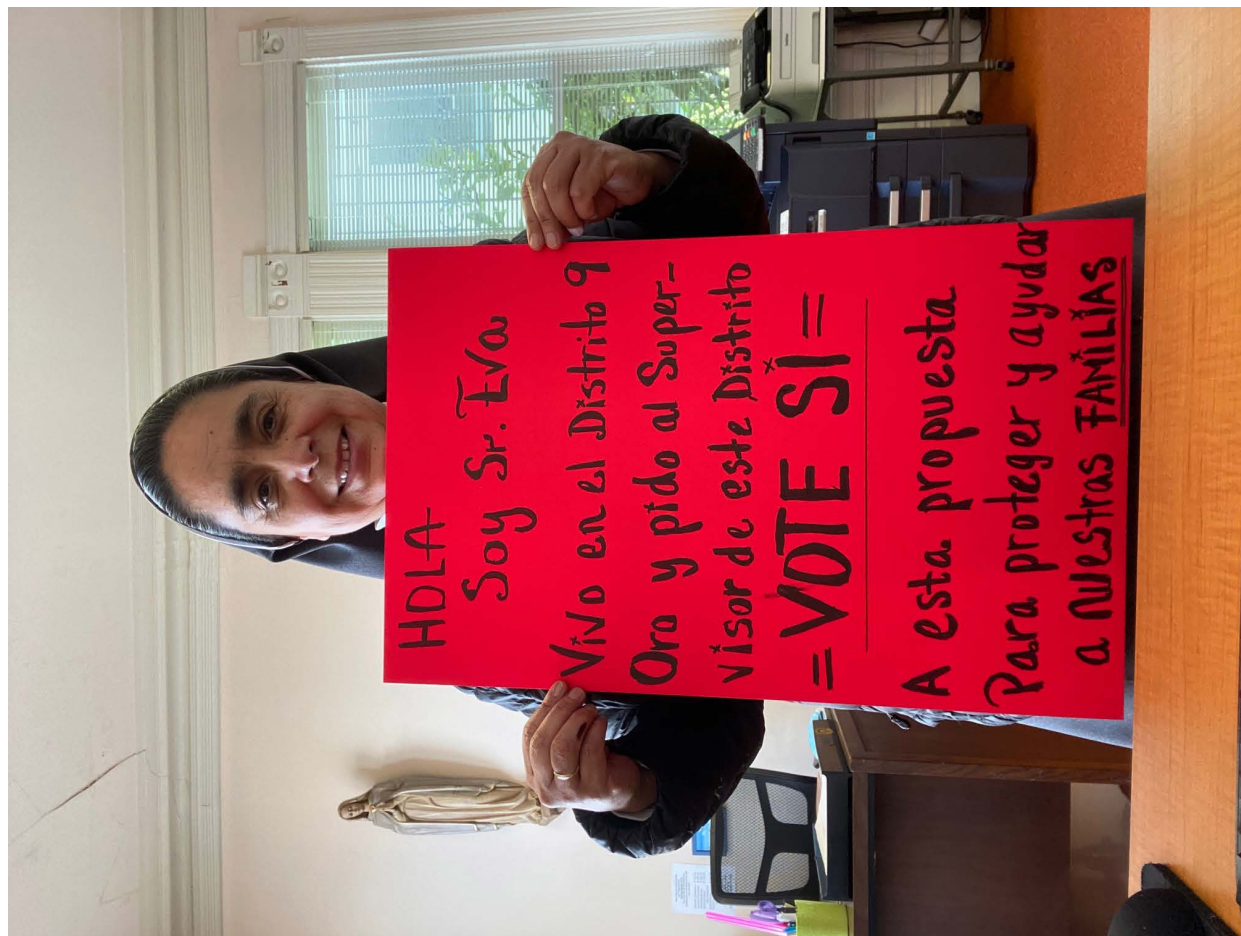 HOLA
Soy Sr. Eva
Vivo en el Distrito 9
Oro y pido al Super-
visor de este Distrito
= VOTE SI =
A esta propuesta
Para proteger y ayudar
a nuestras FAMILIAS